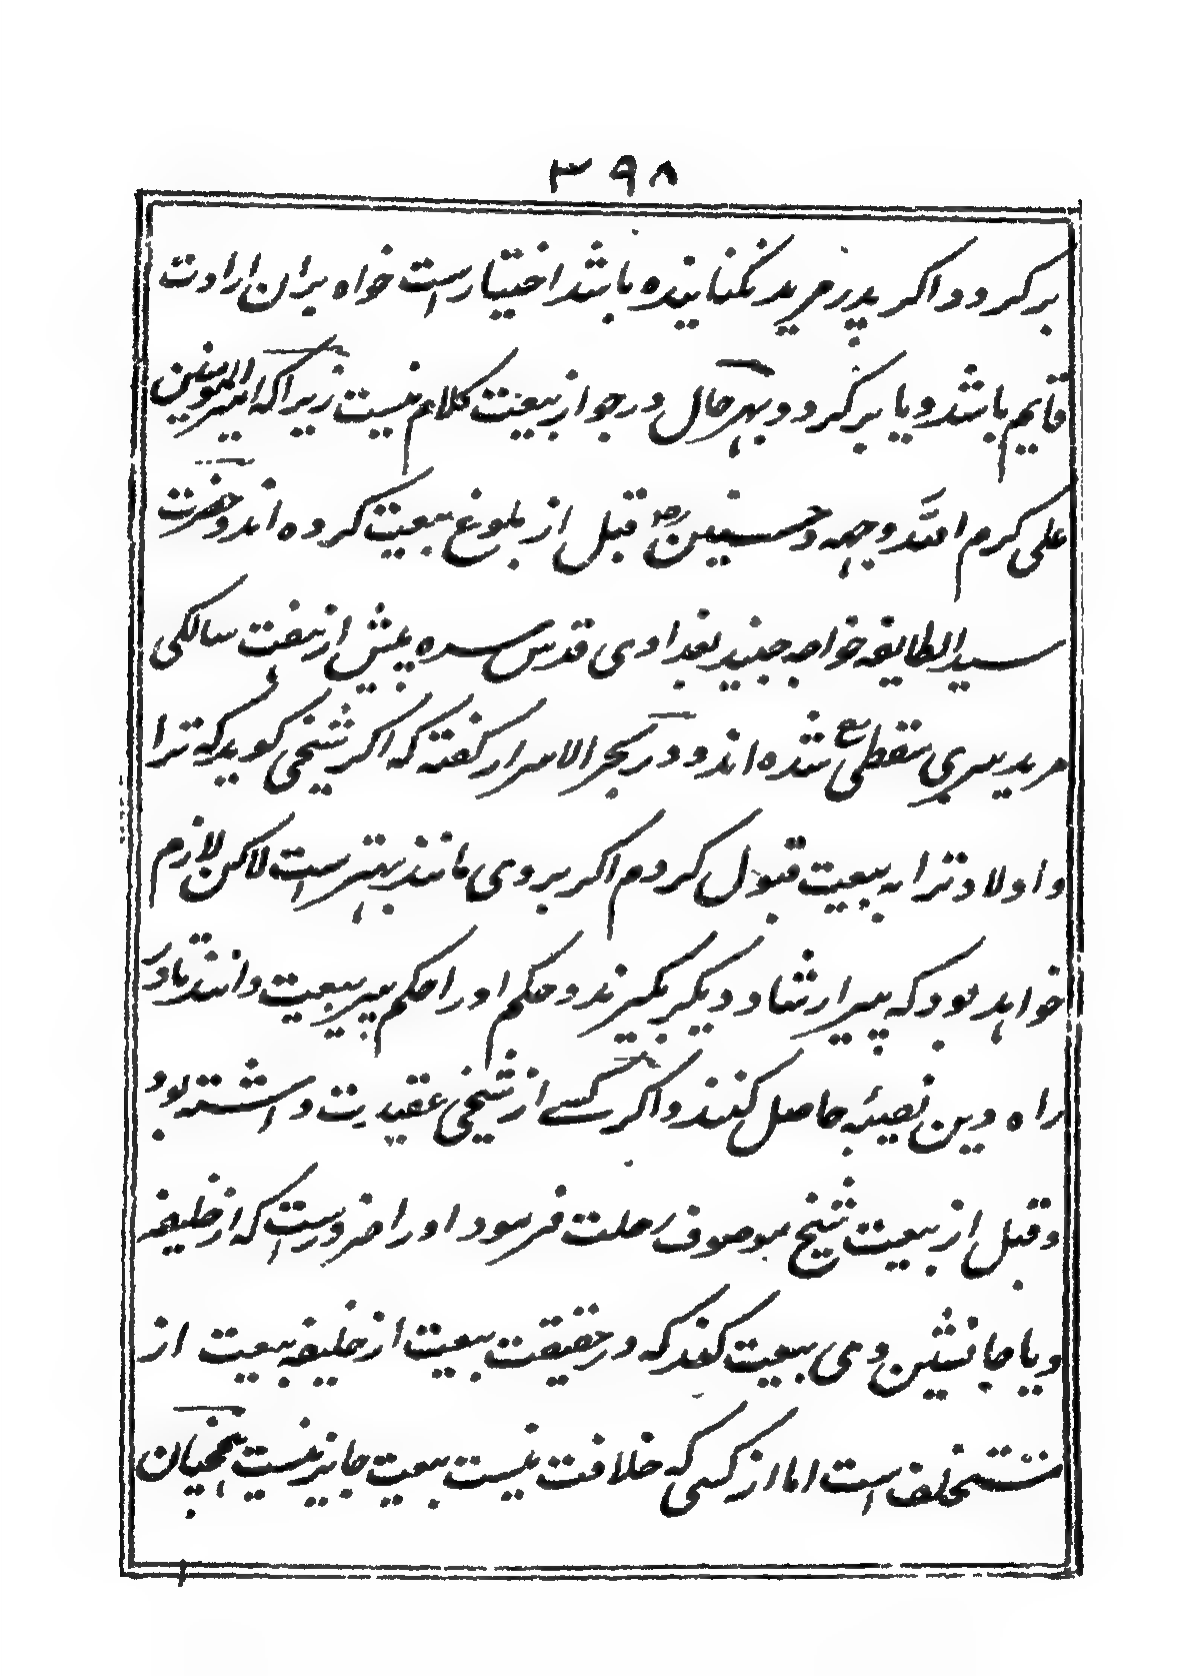 ۳۹۸
بر گردد و اگر پدر مرید نکنانیده باشد اختیار است خواه بران ارادت
قایم باشد و یا بر گردد و بهر حال در جواز بیعت کلام نیست زیرا که امیر المومنین
علی کرم الله وجهه و حسنین رض قبل از بلوغ بیعت کرده اند و حضرت
سید الطایفه خواجه جنید بغدادی قدس سره پیش از هفت سالگی
مرید سری سقطی رح شده اند و در بحر الاسرار گفته که اگر شیخی گوید که ترا
و اولاد ترا به بیعت قبول کردم اگر بر وی مانند بهتر است لاکن لازم
خواهد بود که پیر ارشاد دیگر بگیرند و حکم او را حکم پیر بیعت دانند تا در
راه دین نصیبه حاصل کنند و اگر کسے از شیخی عقیدیت داشته بود
و قبل از بیعت شیخ موصوف رحلت فرمود او را ضرورست که از خلیفه
و یا جانشین وی بیعت کند که در حقیقت بیعت از خلیفه بیعت از
مستخلف است اما از کسی که خلافت نیست بیعت جایز نیست همچنان